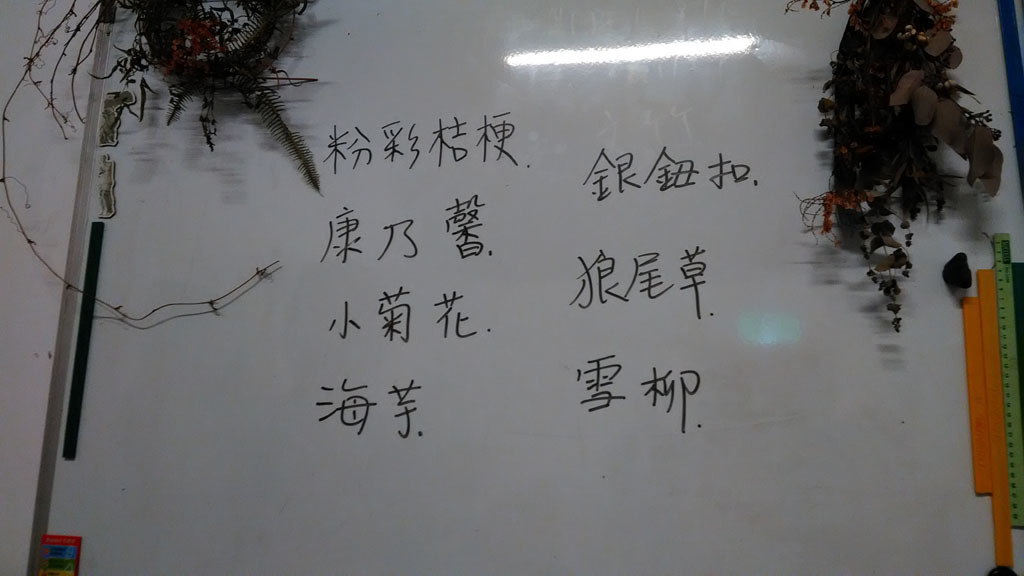 粉彩桔梗.
康乃馨.
小菊花.
海芋.
銀鈕扣.
狼尾草.
雪柳.